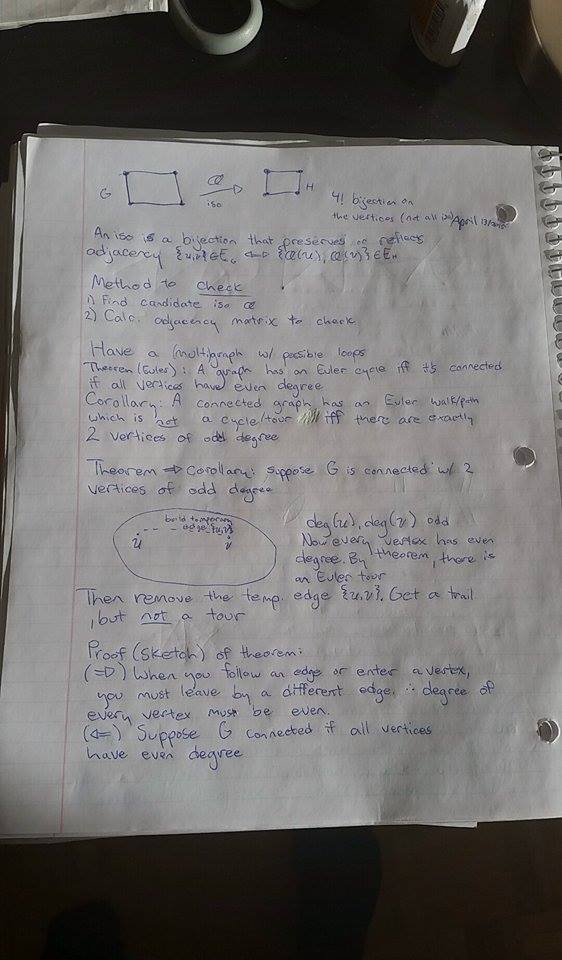 G φ iso H
4! bijection on
the vertices (not all iso) April 13/
An iso is a bijection that preserves or reflects
adjacency {u,v}∈E_G ⇔ {φ(u),φ(v)}∈E_H
Method to check
1) Find candidate iso φ
2) Calc. adjacency matrix to check
Have a (multi)graph w/ possible loops
Theorem (Euler): A graph has an Euler cycle iff it's connected
if all vertices have even degree
Corollary: A connected graph has an Euler walk/path
which is not a cycle/tour iff there are exactly
2 vertices of odd degree
Theorem ⇒ Corollary: Suppose G is connected w/ 2
vertices of odd degree
build temporary
edge {u,v}
u v
deg(u), deg(v) odd
Now every vertex has even
degree. By theorem, there is
an Euler tour
Then remove the temp. edge {u,v}. Get a trail
, but not a tour
Proof (sketch) of theorem:
(⇒) When you follow an edge or enter a vertex,
you must leave by a different edge. ∴ degree of
every vertex must be even.
(⇐) Suppose G connected if all vertices
have even degree